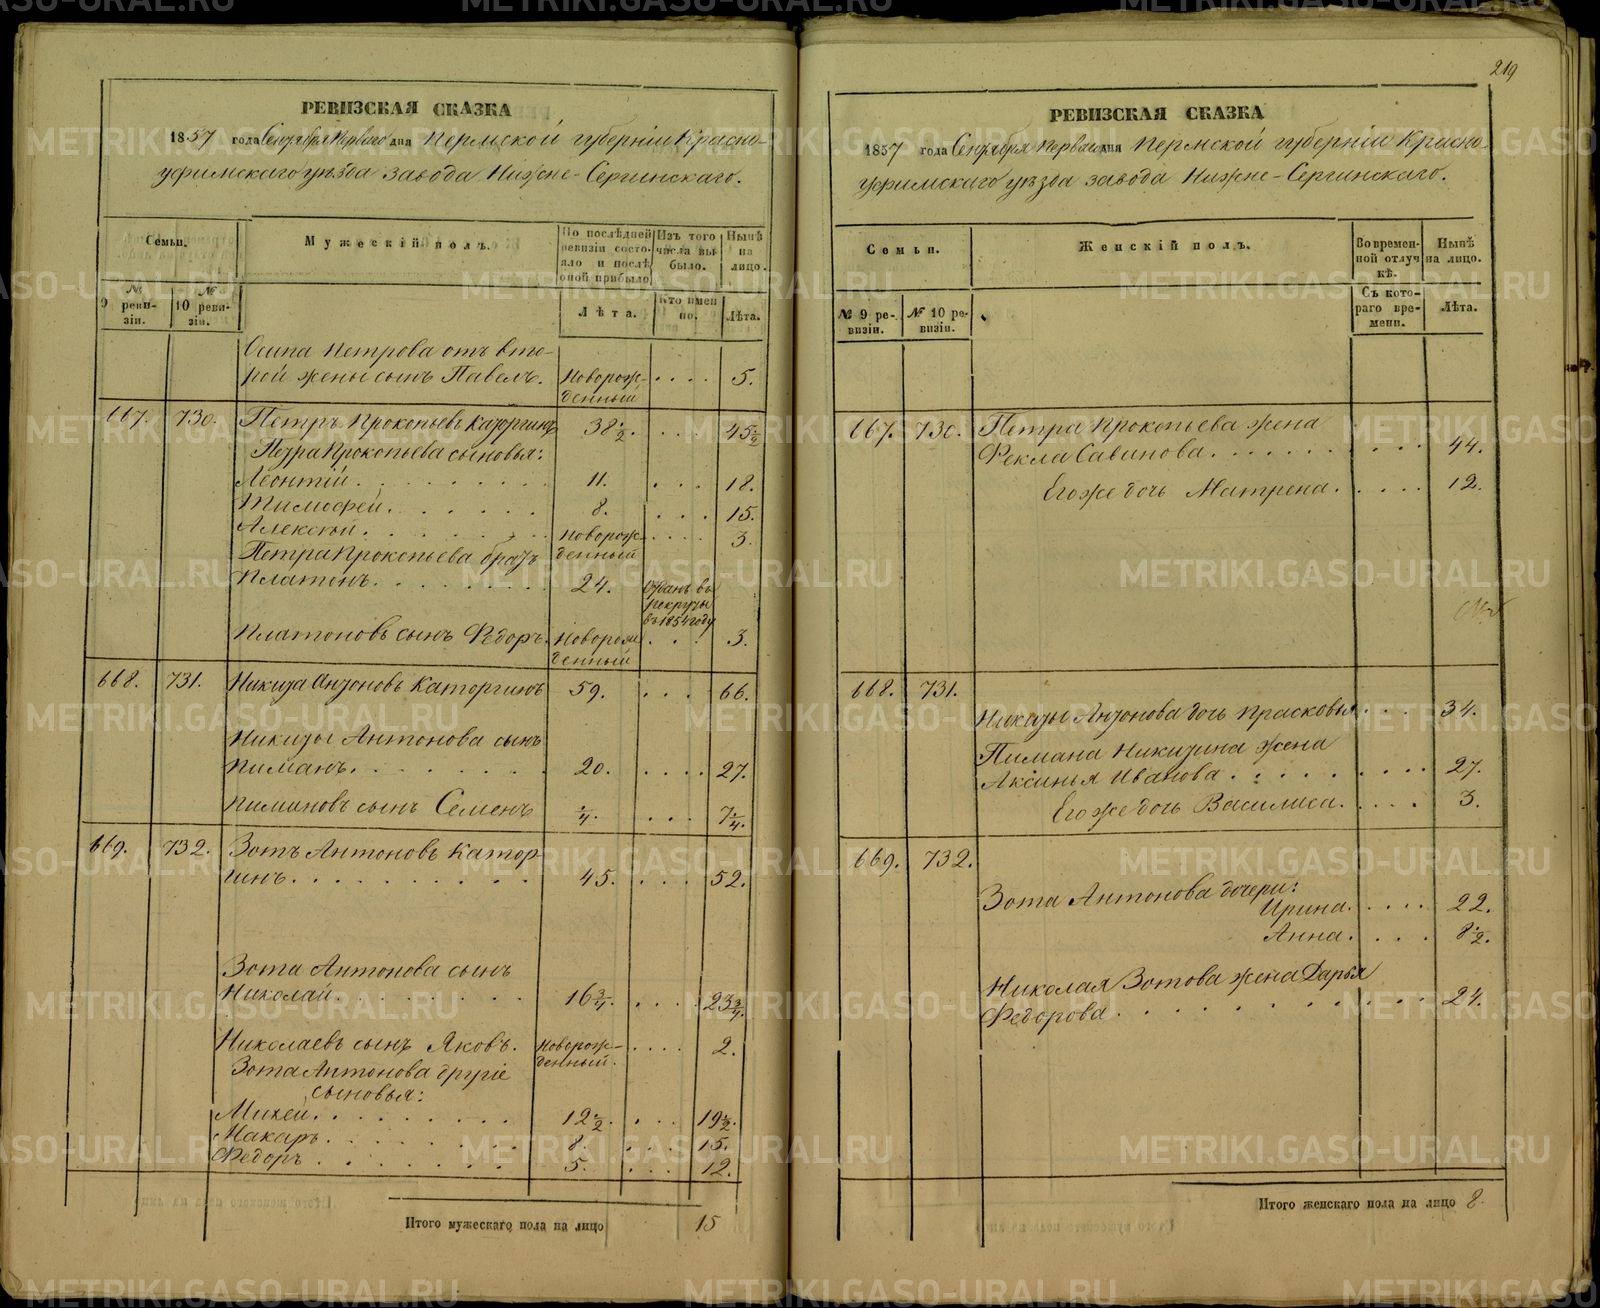 219
РЕВИЗСКАЯ СКАЗКА
1857 года Сентября Перваго дня Пермской губерніи Красно-
уфимскаго уѣзда завода Нижне-Сергинскаго.
Семьи.
Мужескій полъ.
По послѣдней ревизіи состояло и послѣ оной прибыло
Изъ того числа выбыло.
Нынѣ на лицо.
№ 9 ревизіи.
№ 10 ревизіи.
Лѣта.
Кто имен но.
Лѣта.
Осипа Петрова отъ вто-
рой жены сынъ Павелъ. Новорож- . . . . 5.
денный
667. 730. Петръ Прокопьевъ Каторгинъ 38 1/2. . . . 45 1/2
Петра Прокопьева сыновья:
Леонтій. . . . . . . . . . 11. . . . 18.
Тимофей. . . . . . . 8. . . . 15.
Алексѣй. . . . . . . . Новорож- . . . . 3.
Петра Прокопьева братъ денный
Платонъ. . . . . . . . 24. Отданъ въ
рекруты
въ 1854 году
Платоновъ сынъ Федоръ. Новорож . . . 3.
денный
668. 731. Никита Антоновъ Каторгинъ 59. . . . 66.
Никиты Антонова сынъ
Пиманъ. . . . . . . . 20. . . . . 27.
Пимановъ сынъ Семенъ 1/4. . . . 7 1/4.
669. 732. Зотъ Антоновъ Катор-
гинъ. . . . . . . . . . 45. . . . . 52.
Зота Антонова сынъ
Николай. . . . . . . . . 16 3/4. . . . . 23 3/4.
Николаевъ сынъ Яковъ. Новорож- . . . . 2.
денный.
Зота Антонова другіе
сыновья:
Михей. . . . . . . . . 12 1/2. . . . 19 1/2.
Макаръ. . . . . . . . . 8. . . . 15.
Федоръ. . . . . . . . 5. . . . 12.
Итого мужескаго пола на лицо 15
РЕВИЗСКАЯ СКАЗКА
1857 года Сентября Перваго дня Пермской губерніи Красно-
уфимскаго уѣзда завода Нижне-Сергинскаго.
Семьи.
Женскій полъ.
Во временной отлучкѣ.
Нынѣ на лицо.
№ 9 ревизіи.
№ 10 ревизіи.
Съ котораго времени.
Лѣта.
667. 730. Петра Прокопьева жена
Фекла Савинова. . . . . . . . . . . 44.
Его же дочь Матрена. . . . . 12.
668. 731.
Никиты Антонова дочь Прасковья . . . 34.
Пимана Никитина жена
Аксинья Иванова. . . . . . . . . . 27.
Его же дочь Василиса. . . . . 3.
669. 732.
Зота Антонова дочери:
Ирина. . . . . 22.
Анна. . . . . 8 1/2.
Николая Зотова жена Дарья
Федорова. . . . . . . . . . . . 24.
Итого женскаго пола на лицо 8.
METRIKI.GASO-URAL.RU